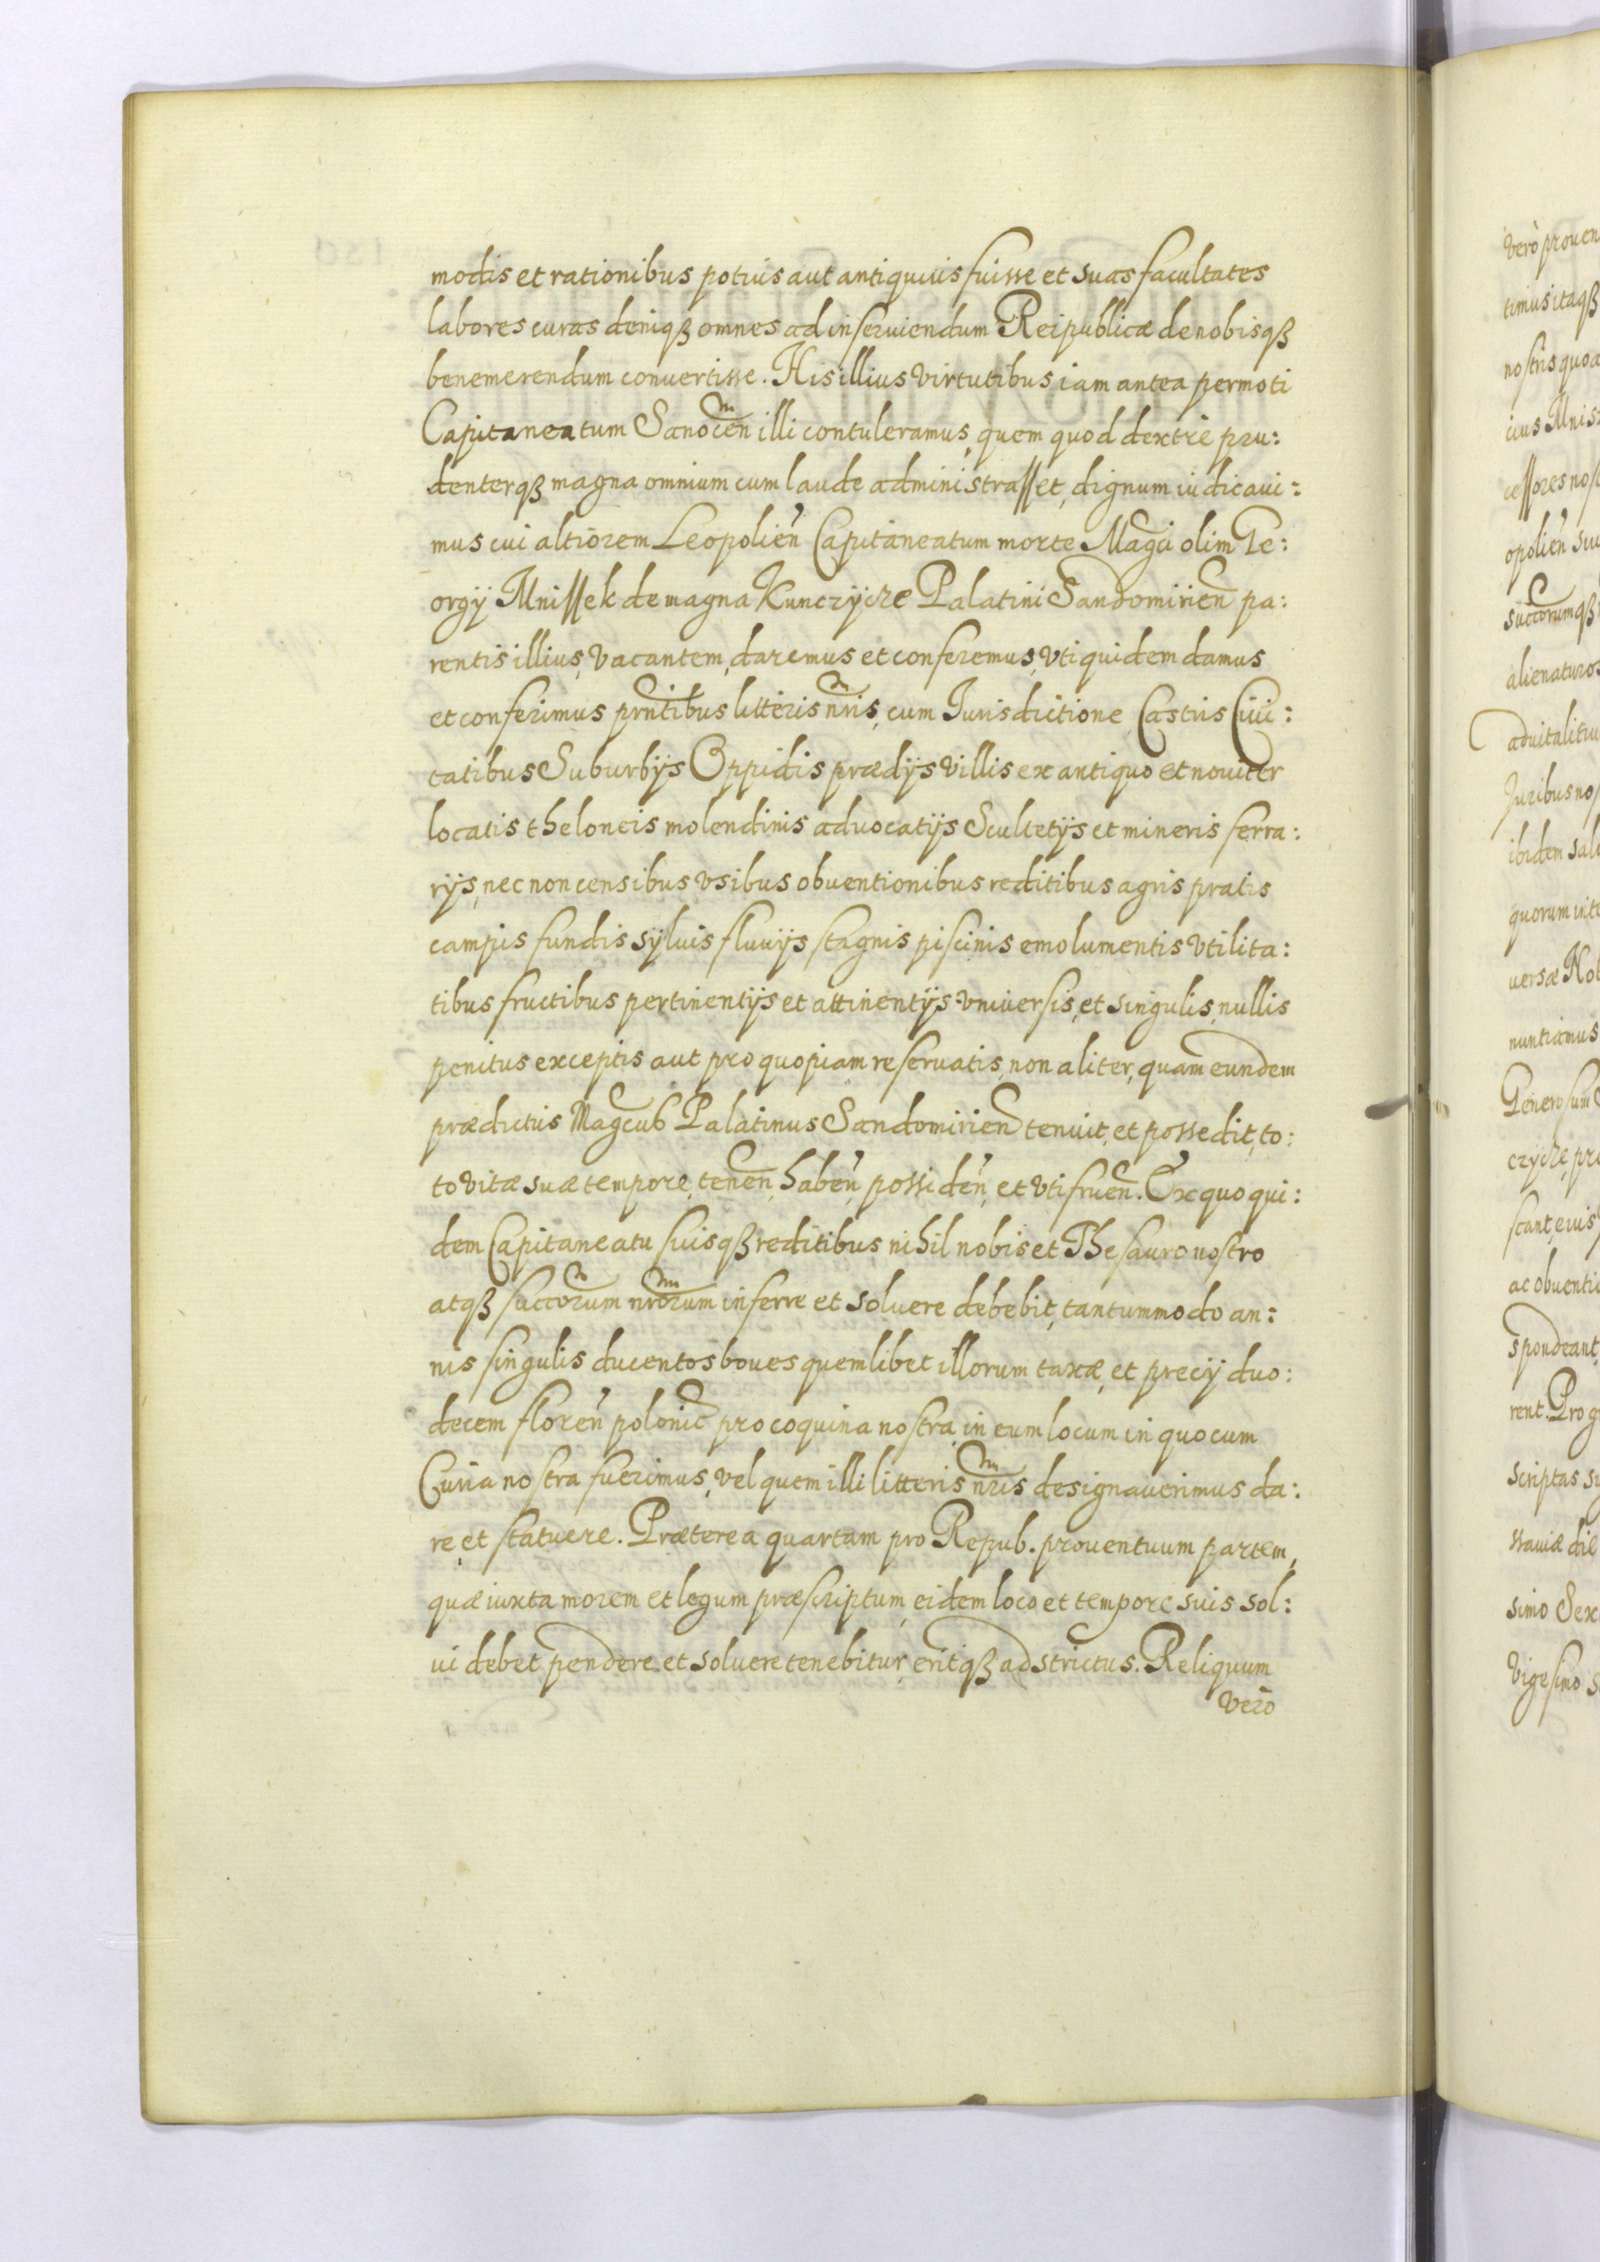 modis et rationibus potius aut antiquius fuisse et suas facultates
labores curas deniqȝ omnes ad inserviendum Reipublicæ de nobisqȝ
benemerendum convertisse. His illius virtutibus iam antea permoti
Capitaneatum Sanocen̄ illi contuleramus, quem quod dextre pru:
denterqȝ magna omnium cum laude administrasset, dignum iudicaui:
mus cui altiorem Leopolien̄ Capitaneatum morte Mag̃ci olim Ge:
orgÿ Mnissek de magna Kunczÿcze Palatini Sandomirien̄ pa:
rentis illius, vacantem, daremus et conferemus, vti quidem damus
et conferimus prn̄tibus litteris nr̄is, cum Iurisdictione Castris Ciui:
tatibus Suburbÿs Oppidis prædÿs villis ex antiquo et noviter
locatis theloneis molendinis advocatÿs Scultetÿs et mineris ferra:
rÿs, nec non censibus, vsibus obventionibus reditibus agris pratis
campis fundis sÿlvis fluvÿs stagnis piscinis emolumentis vtilita:
tibus fructibus pertinentÿs et attinentÿs vniversis, et singulis, nullis
penitus exceptis aut pro quopiam reservatis, non aliter, quam eundem
prædictus Mag̃cus Palatinus Sandomirien̄ tenuit, et possedit, to:
to vitæ suæ tempore, tenen̄, haben̄, possiden̄, et vtifruen̄. Ex quo qui:
dem Capitaneatu suisqȝ reditibus, nihil nobis et Thesauro nostro
atqȝ succor̄um nr̄orum inferre et solvere debebit, tantummodo an:
nis singulis ducentos boves quemlibet illorum taxæ, et precÿ duo:
decem floren̄ polonic̄ pro coquina nostra, in eum locum in quo cum
Curia nostra fuerimus, vel quem illi litteris nr̄is designaverimus da:
re, et statuere. Præterea quartam pro Repub. proventuum partem,
quæ iuxta morem et legum præscriptum, eidem loco et tempore suis sol:
ui debet pendere et solvere tenebitur, eritqȝ adstrictus. Reliquum
vero